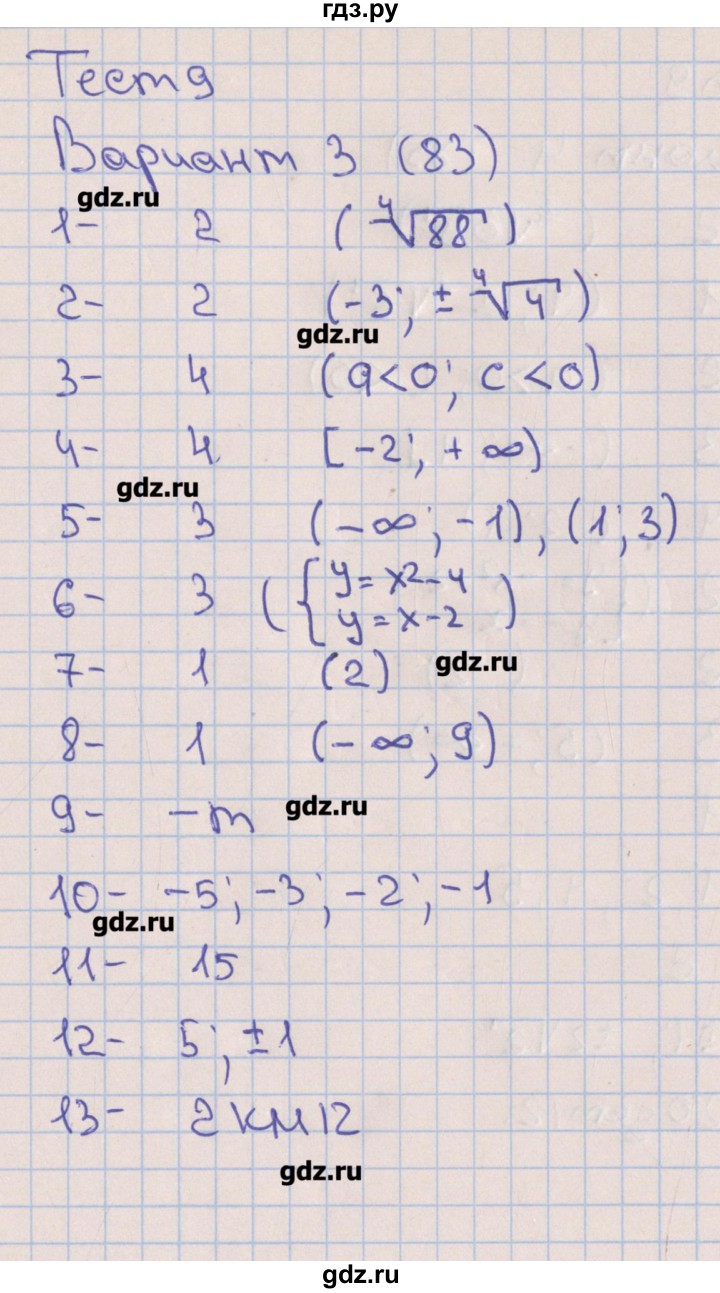 гдз.ру
Тест 9
Вариант 3 (83)
gdz.ru
1- 2 (∜88)
2- 2 (-3; ±∜4)
gdz.ru
3- 4 (a<0; c<0)
4- 4 [-2; +∞)
gdz.ru
5- 3 (-∞; -1), (1; 3)
6- 3 ({y=x2-4
y=x-2)
7- 1 (2)
gdz.ru
8- 1 (-∞; 9)
9- -m
gdz.ru
10- -5; -3; -2; -1
gdz.ru
11- 15
12- 5; ±1
13- 2км12
gdz.ru
gdz.ru